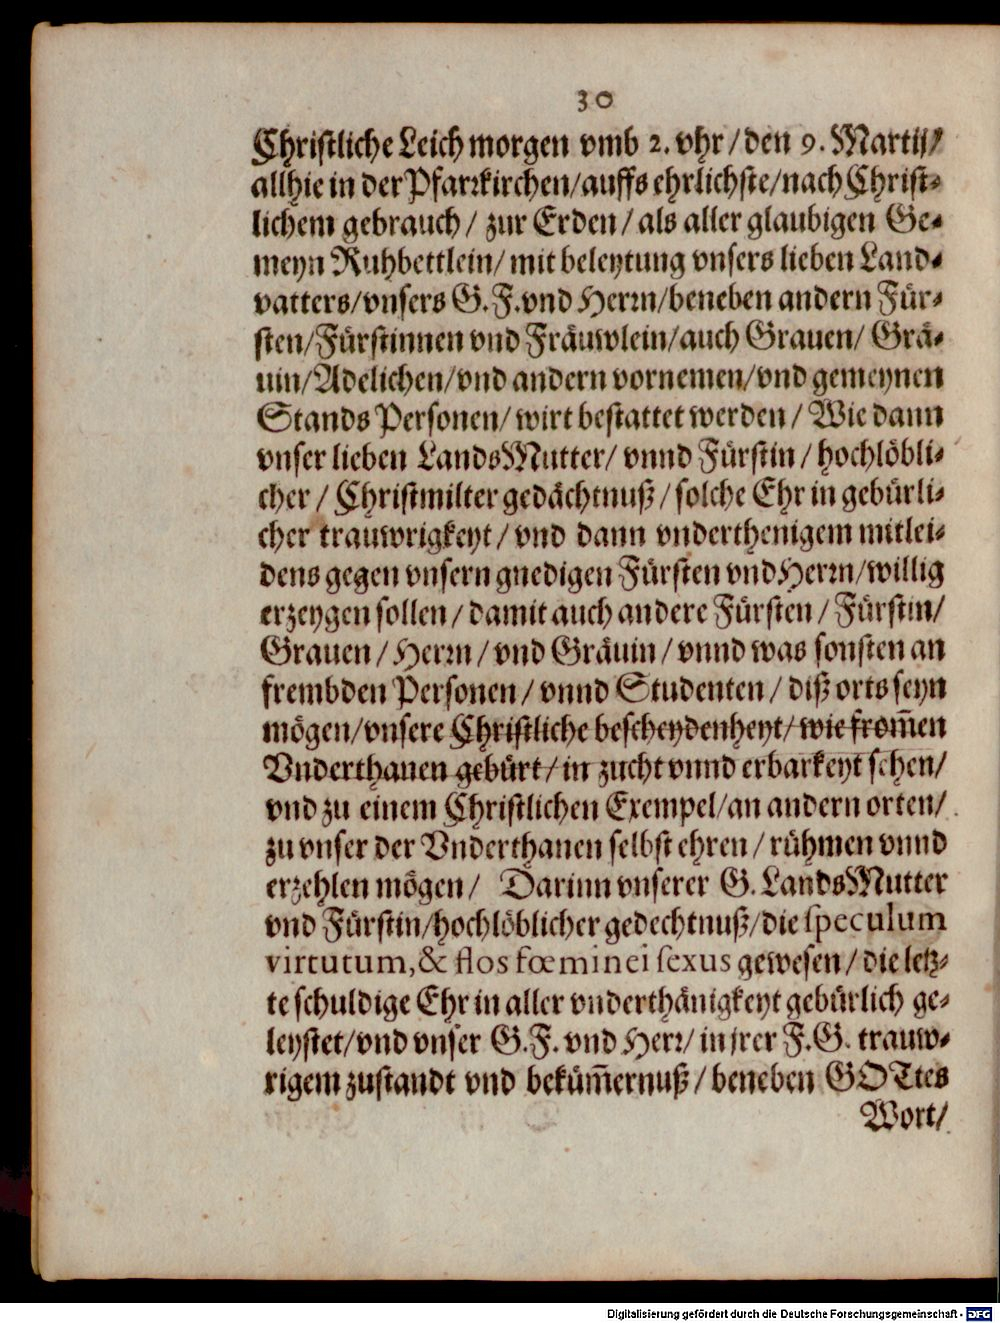 30
Christliche Leich morgen vmb 2. vhr / den 9. Martij/
allhie in der Pfarrkirchen/auffs ehrlichste/nach Christ-
lichem gebrauch / zur Erden / als aller glaubigen Ge-
meyn Ruhbettlein/ mit beleytung vnsers lieben Land-
vatters/vnsers G.F.vnd Herrn/beneben andern Für-
sten/Fürstinnen vnd Fräuwlein/auch Grauen/ Grä-
uin/Adelichen/vnd andern vornemen/vnd gemeynen
Stands Personen/ wirt bestattet werden / Wie dann
vnser lieben LandsMutter/ vnnd Fürstin / hochlöbli-
cher / Christmilter gedächtnuß / solche Ehr in gebürli-
cher trauwrigkeyt / vnd dann vnderthenigem mitlei-
dens gegen vnsern gnedigen Fürsten vnd Herrn/willig
erzeygen sollen / damit auch andere Fürsten / Fürstin/
Grauen / Herrn / vnd Gräuin / vnnd was sonsten an
frembden Personen / vnnd Studenten / diß orts seyn
mögen/vnsere Christliche bescheydenheyt/wie from̄en
Vnderthanen gebürt/in zucht vnnd erbarkeyt sehen/
vnd zu einem Christlichen Exempel/an andern orten/
zu vnser der Vnderthanen selbst ehren / rühmen vnnd
erzehlen mögen/ Darinn vnserer G. LandsMutter
vnd Fürstin/hochlöblicher gedechtnuß/die speculum
virtutum,& flos fœminei sexus gewesen / die letz-
te schuldige Ehr in aller vnderthänigkeyt gebürlich ge-
leystet/vnd vnser G.F. vnd Herr/ in jrer F.G. trauw-
rigem zustandt vnd beküm̄ernuß / beneben GOTtes
Wort/
Digitalisierung gefördert durch die Deutsche Forschungsgemeinschaft - DFG